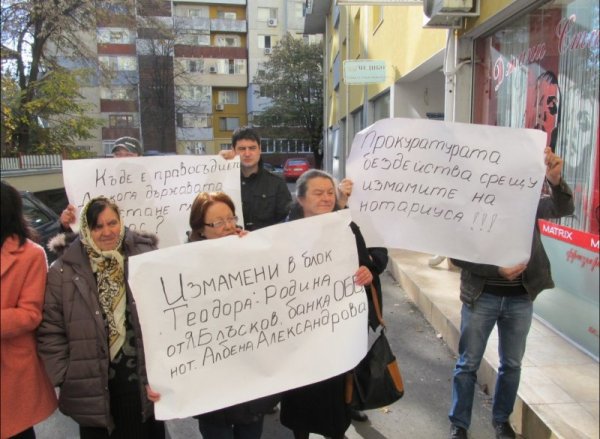 Къде е правосъдие
Докога държавата
ще стане г
ас?
Прокуратурата
бездейства срещу
измамите на
нотариуса!!!
Измамени в блок
Теодора: Родина
от Я Блъсков, банка ОББ
нот. Албена Александрова
MATRIX
MATRIX